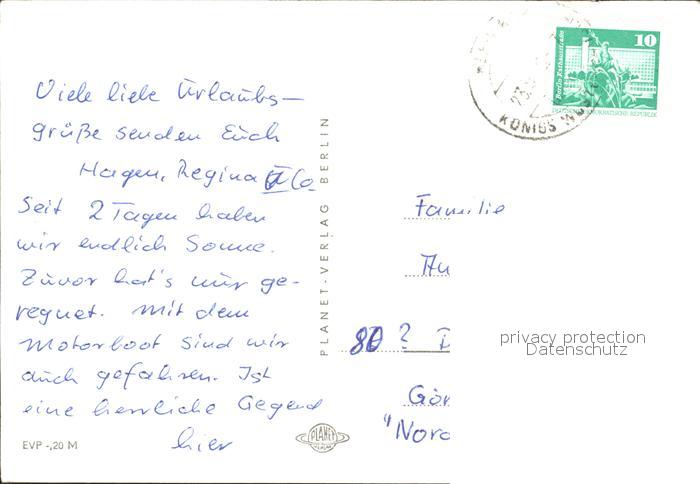 Viele liebe Urlaubs-
grüße senden Euch
Hagen, Regina & Co.
Seit 2 Tagen haben
wir endlich Sonne.
Zuvor hat's nur ge-
regnet. Mit dem
Motorboot sind wir
auch gefahren. Ist
eine herrliche Gegend
hier
EVP -,20 M
PLANET-VERLAG BERLIN
PLANET
VERLAG
10
Berlin, Rathausstraße
DEUTSCHE DEMOKRATISCHE REPUBLIK
KÖNIGS WUST
Familie
Au
80 ? D
Gör
"Nord
privacy protection
Datenschutz